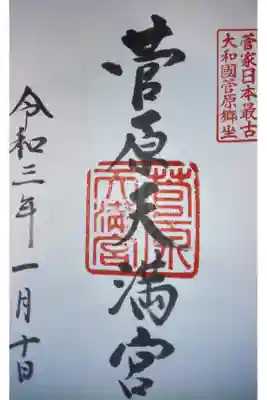 菅家日本最古
大和國菅原郷坐
菅原天満宮
菅原
天満宮
令和三年一月十日